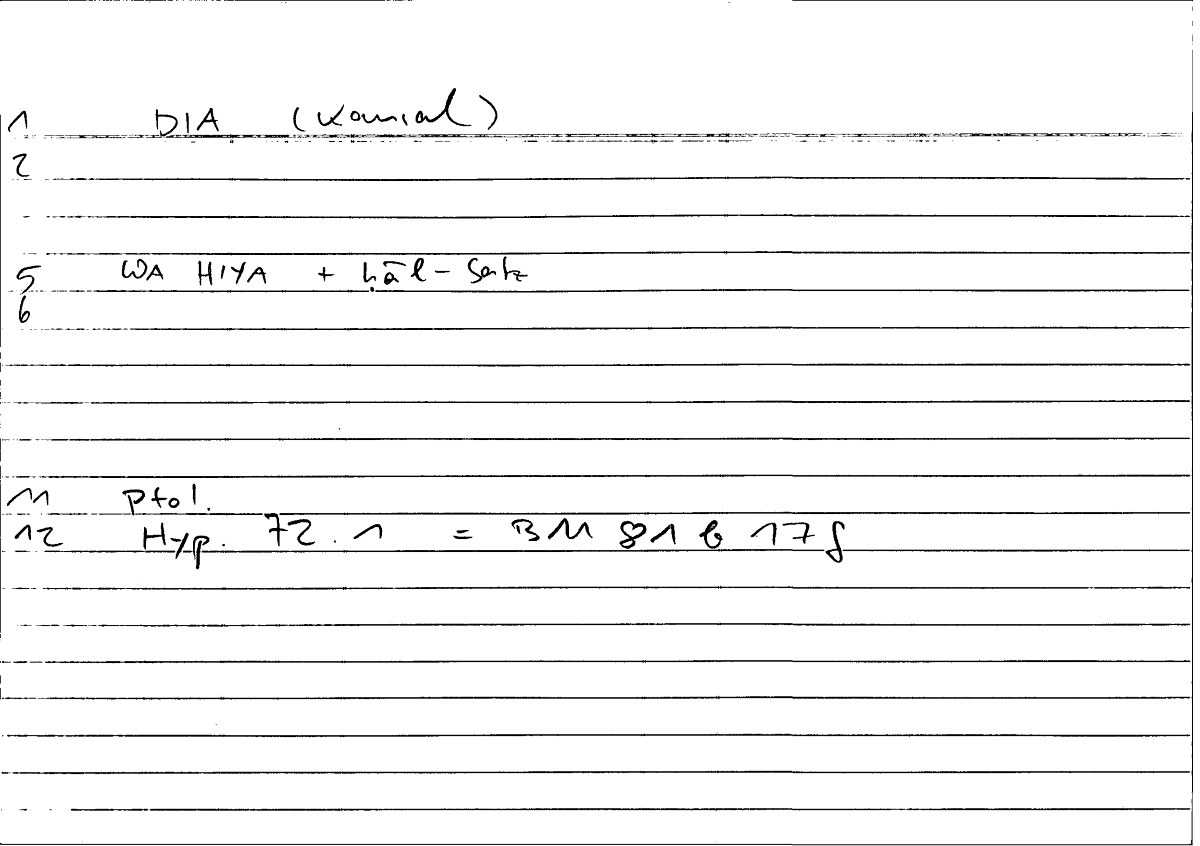 1 DIA (kausal)
2
5 WA HIYA + ḥāl-Satz
6
11 Ptol.
12 Hyp. 72.1 = BM 81 b 17 f